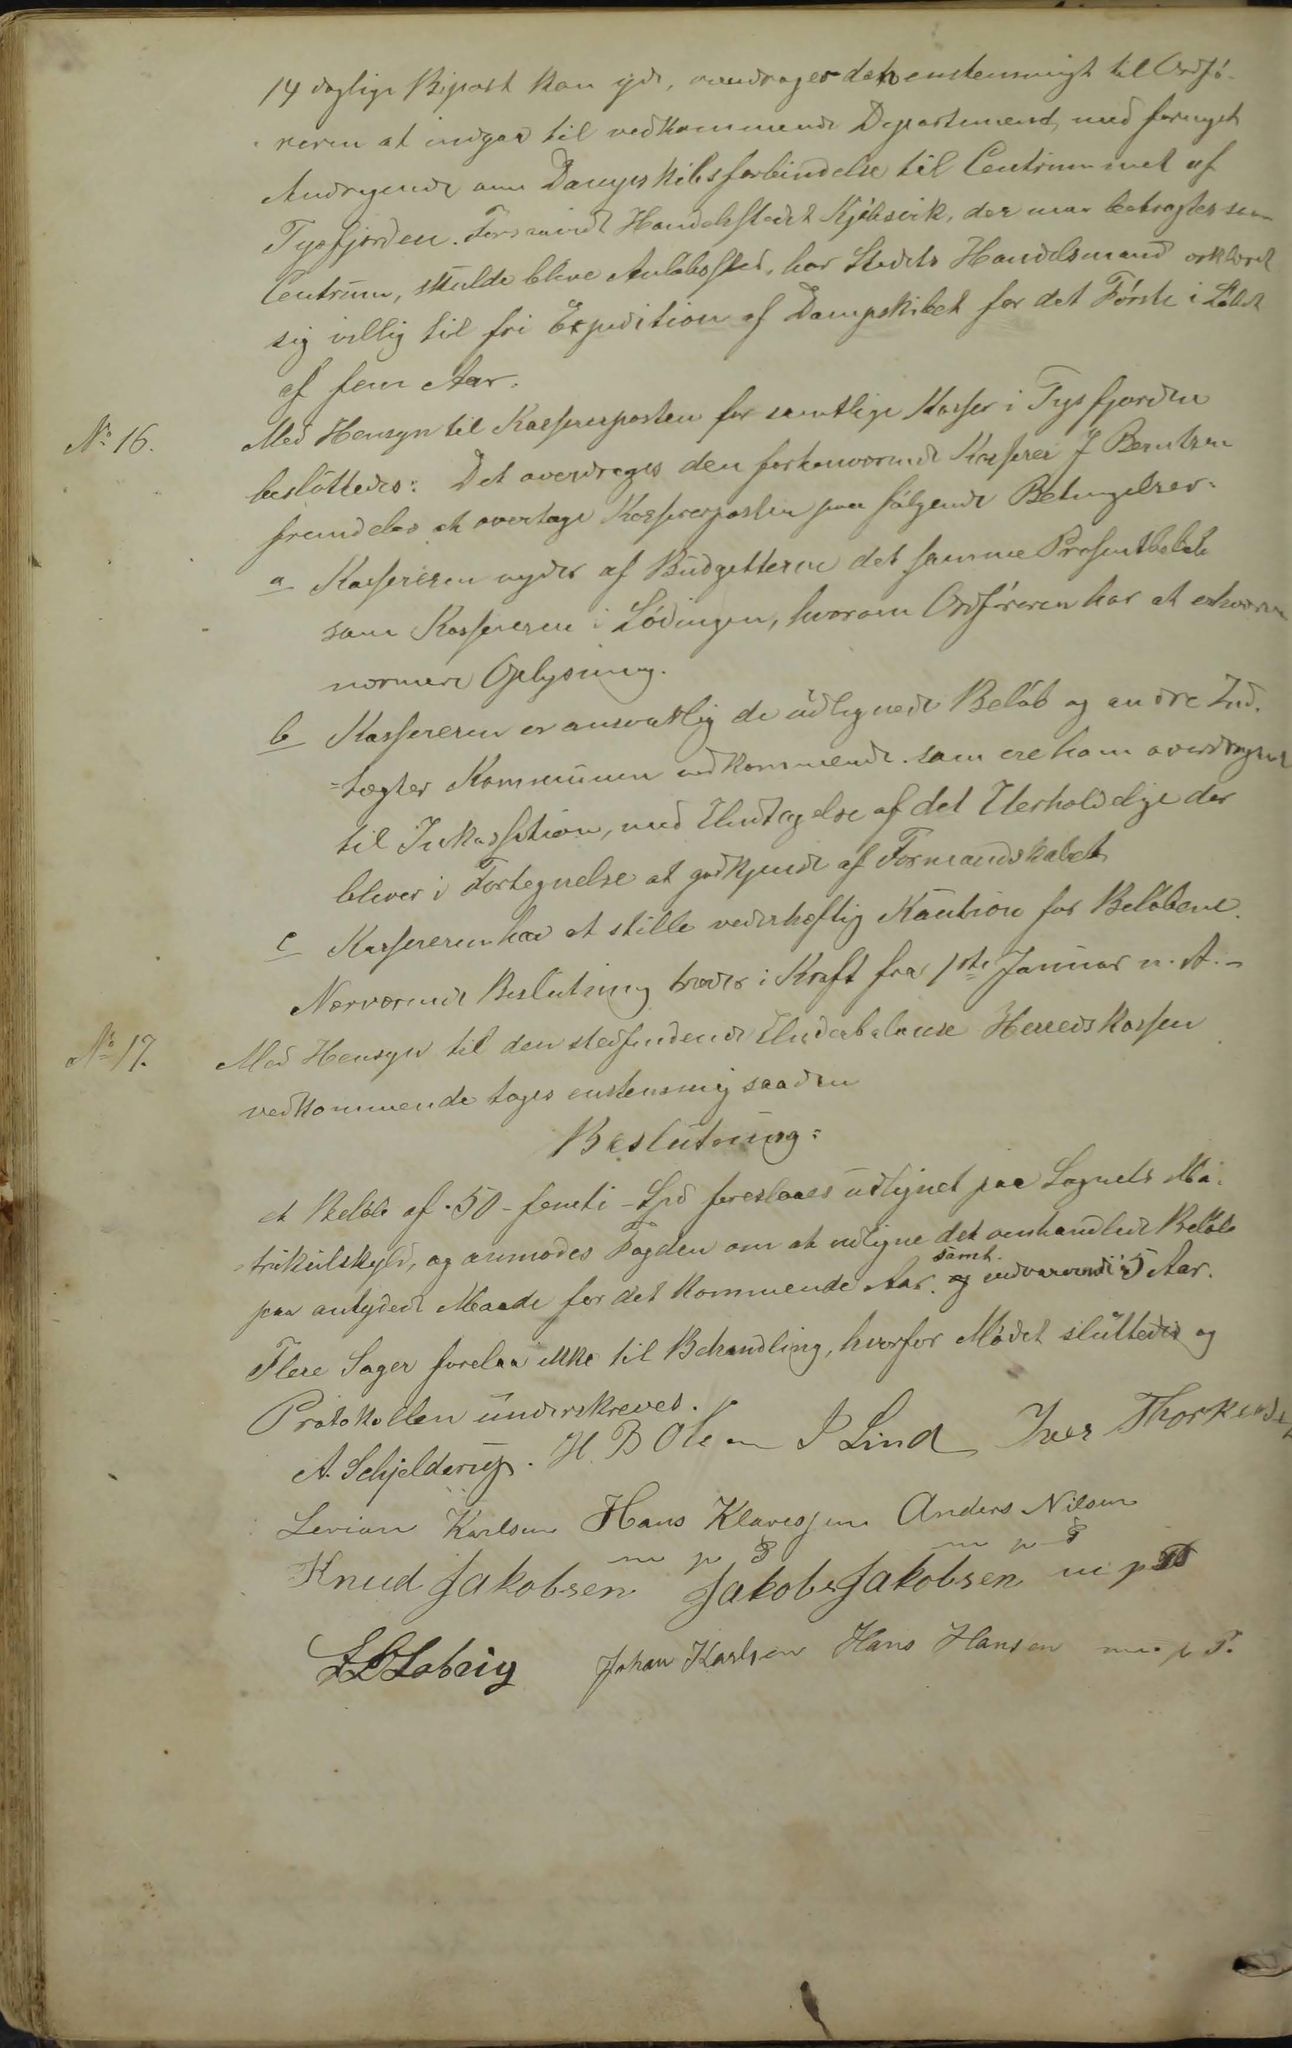 14 daglige Bipost kan ydes, overdrages det enstemmigt til Ordfö-
reren at indgaa til vedkommende Departement, med fornyet
Andragende om Dampskibsforbindelse til Centrummet af
Tysfjorden. Forsaavidt Handelsstedet Kjöbsvik, der man betragter som
Centrum, skulde blive Anløbssted, har Stedets Handelsmand erklæret
sig villig til fri Expedition af Dampskibet for det Förste i Löbet
af fem Aar.
No 16. Med Hensyn til Kassererposten for samtlige Kasser i Tysfjorden
besluttedes: Det overdrages den forhenværende Kasserer J Berntsen
fremdeles at overtage Kassererposten paa fölgende Betingelser:
a Kassereren nyder af Budgetterne det samme Prosentbeløb
som Kassereren i Lödingen, hvorom Ordföreren har at erhverve
nærmere Oplysning.
b Kassereren er ansvarlig de udlignede Belöb og andre Ind-
=tægter Kommunen vedkommende som ere ham overdragne
til Inkassation, med Undtagelse af det Uerholdelige der
bliver i Fortegnelse at godkjende af Formandskabet
c Kassereren har at stille vederhæftig Kaution for Belöbene.
Nærværende Beslutning træder i Kraft fra 1ste Januar n. A. -
No 17. Med Hensyn til den stedfindende Underbalanse Herredskassen
vedkommende toges enstemmig saadan
Beslutning:
et Belöb af 50 - femti - Spd foreslaaes udlignet paa Sognets Ma-
trikulskyld, og anmodes Fogden om at udligne det omhandlede Belöb
paa antydede Maade for det kommende Aar. og samt. vedvarende i 5 Aar.
Flere Sager forelaa ikke til Behandling, hvorfor Mödet sluttedes og
Protokollen underskreves.
A. Schjelderup. H. B Olsen J Lind Iver Thorkelsen
Karlsen Hans Klausen Anders Nilsen
m p P m p P
Knud Jakobsen Jakob Jakobsen m p P
Johan Karlsen Hans Hansen m p P.